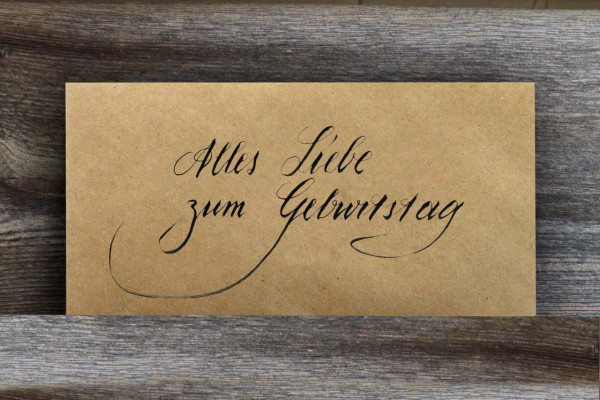 Alles Liebe
zum Geburtstag